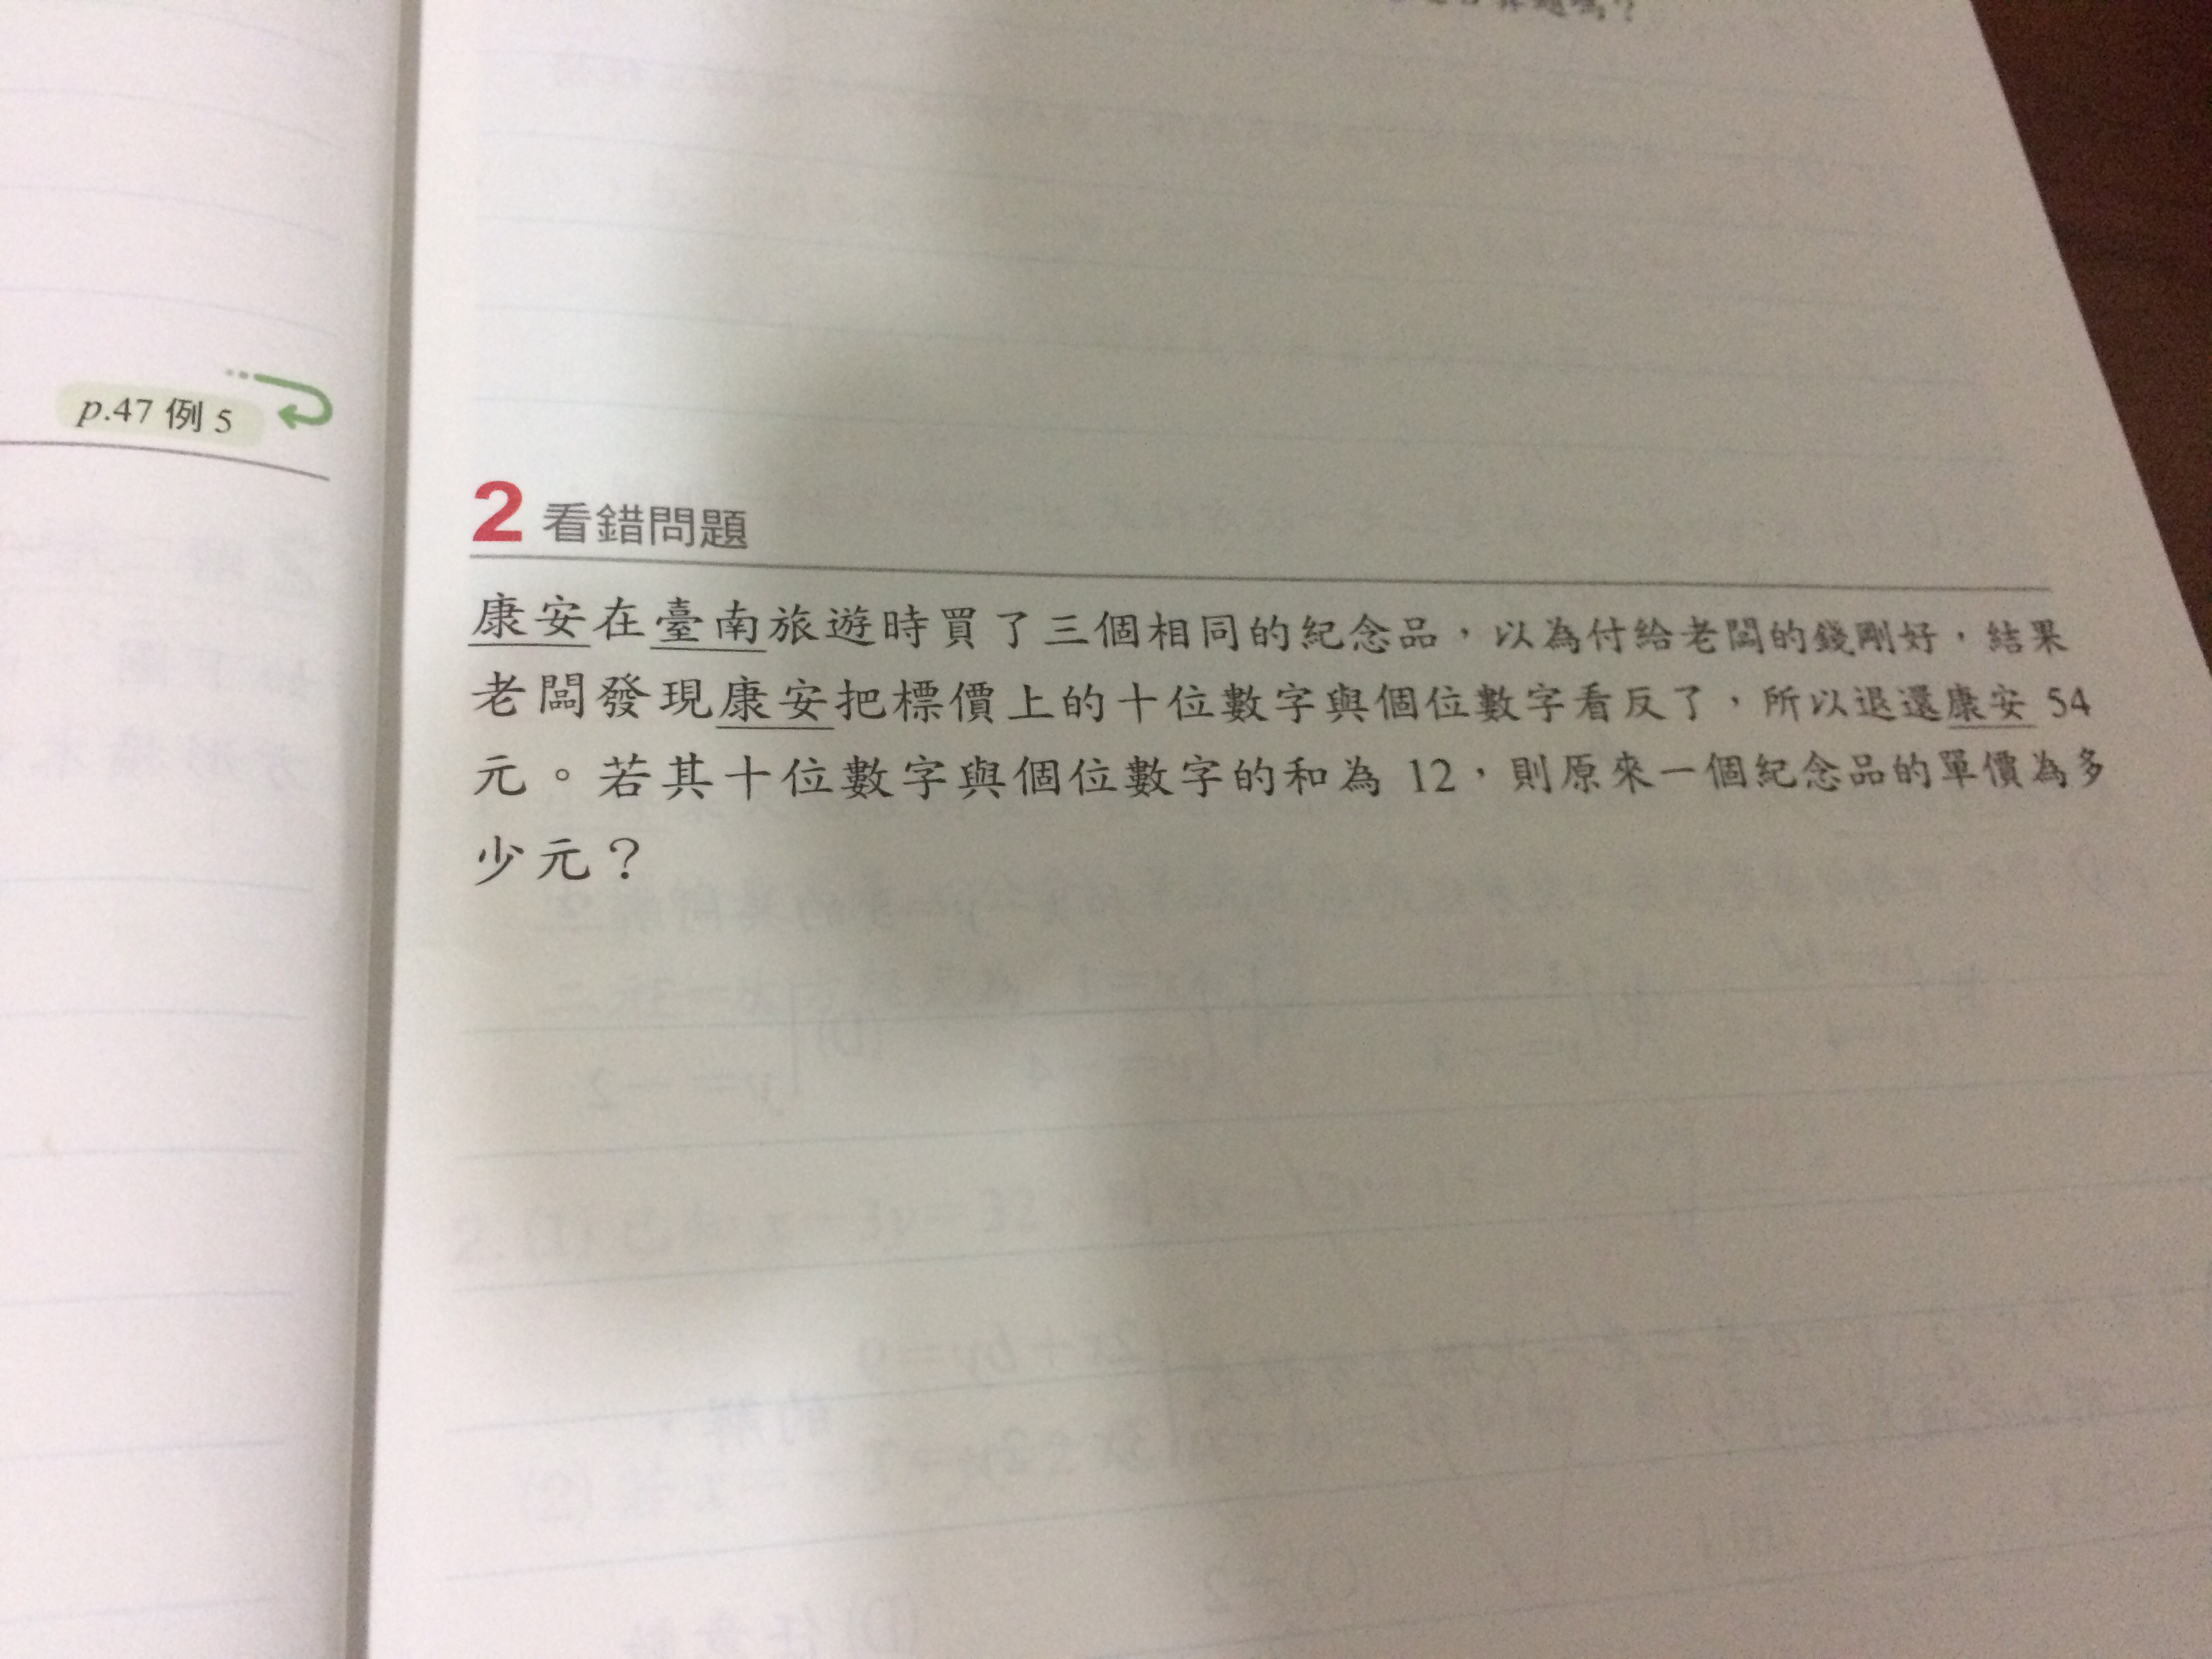 p.47 例 5
2 看錯問題
康安在臺南旅遊時買了三個相同的紀念品，以為付給老闆的錢剛好，結果
老闆發現康安把標價上的十位數字與個位數字看反了，所以退還康安 54
元。若其十位數字與個位數字的和為 12，則原來一個紀念品的單價為多
少元？